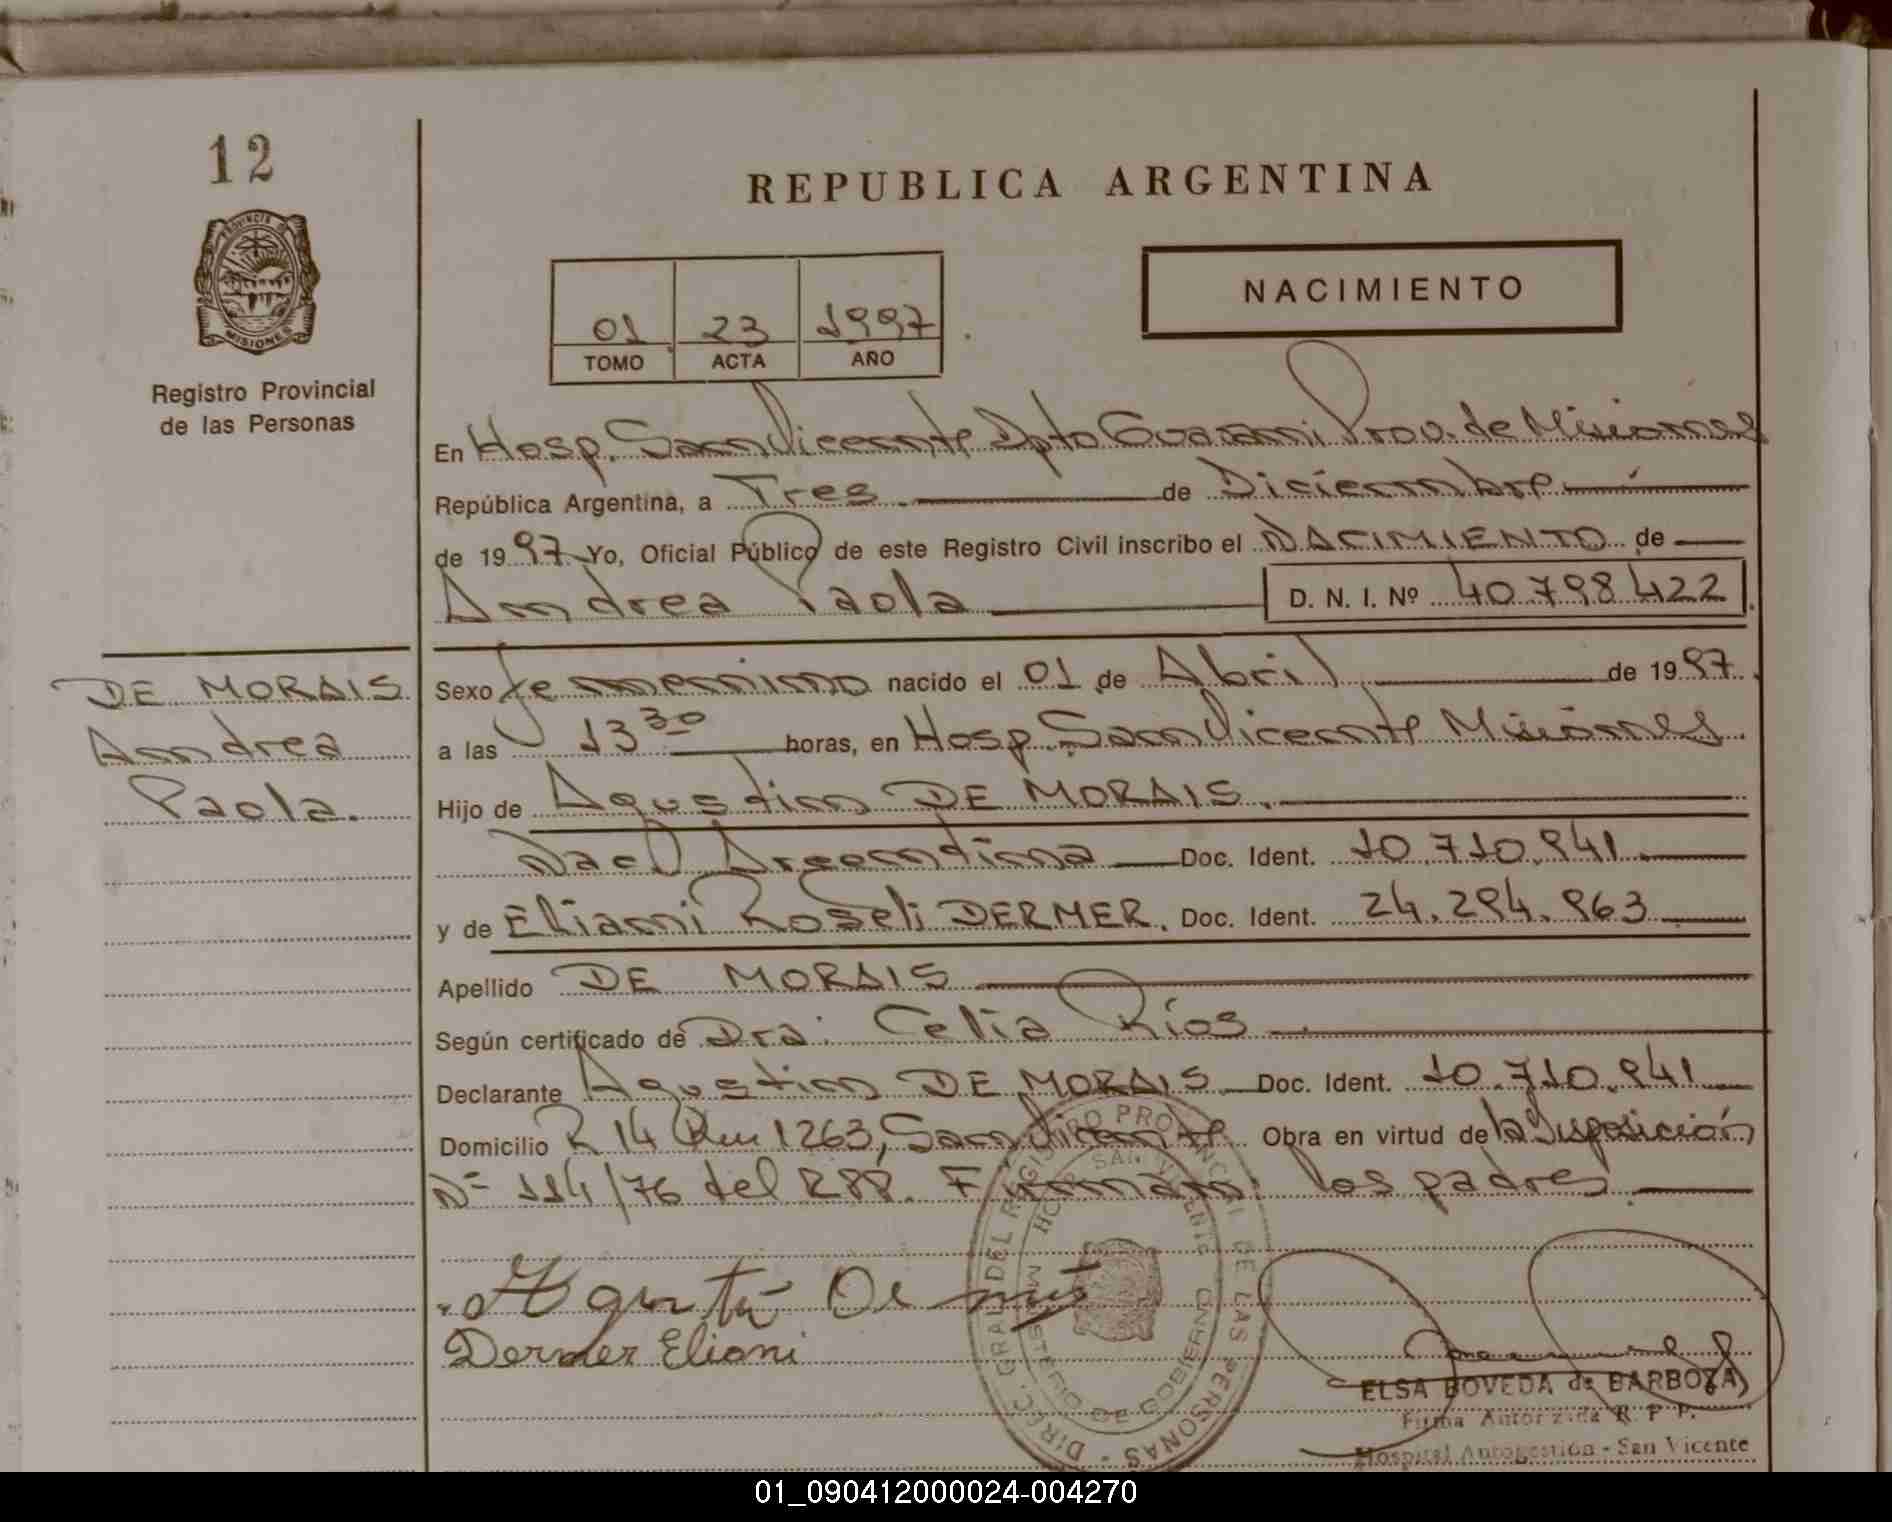 12
PROVINCIA DE
MISIONES
Registro Provincial
de las Personas
REPUBLICA ARGENTINA
01 23 1997
TOMO ACTA AÑO
NACIMIENTO
En Hosp. San Vicente Dpto Guaraní Prov. de Misiones
República Argentina, a Tres de Diciembre
de 1997 Yo, Oficial Público de este Registro Civil inscribo el NACIMIENTO de
Andrea Paola D. N. I. Nº 40.798.422
DE MORAIS
Andrea
Paola.
Sexo femenino nacido el 01 de Abril de 1997.
a las 13 30 horas, en Hosp. San Vicente Misiones
Hijo de Agustin DE MORAIS.
Nacl Argentina Doc. Ident. 10.710.941
y de Eliani Roseli DERMER. Doc. Ident. 24.294.963
Apellido DE MORAIS
Según certificado de Dra. Celia Ríos
Declarante Agustin DE MORAIS Doc. Ident. 10.710.941
Domicilio R 14 Km 1263, San Vicente Obra en virtud de la Disposición
Nº 114/76 del RPP. Firman los padres.
DIRECC. GRAL. DEL REGISTRO PROVINCIAL DE LAS PERSONAS
HOSP. SAN VICENTE
MINISTERIO DE GOBIERNO
Dermer Eliani
ELSA BOVEDA de BARBOZA
Firma Autorizada R. P. P.
Hospital Autogestión - San Vicente
01_090412000024-004270